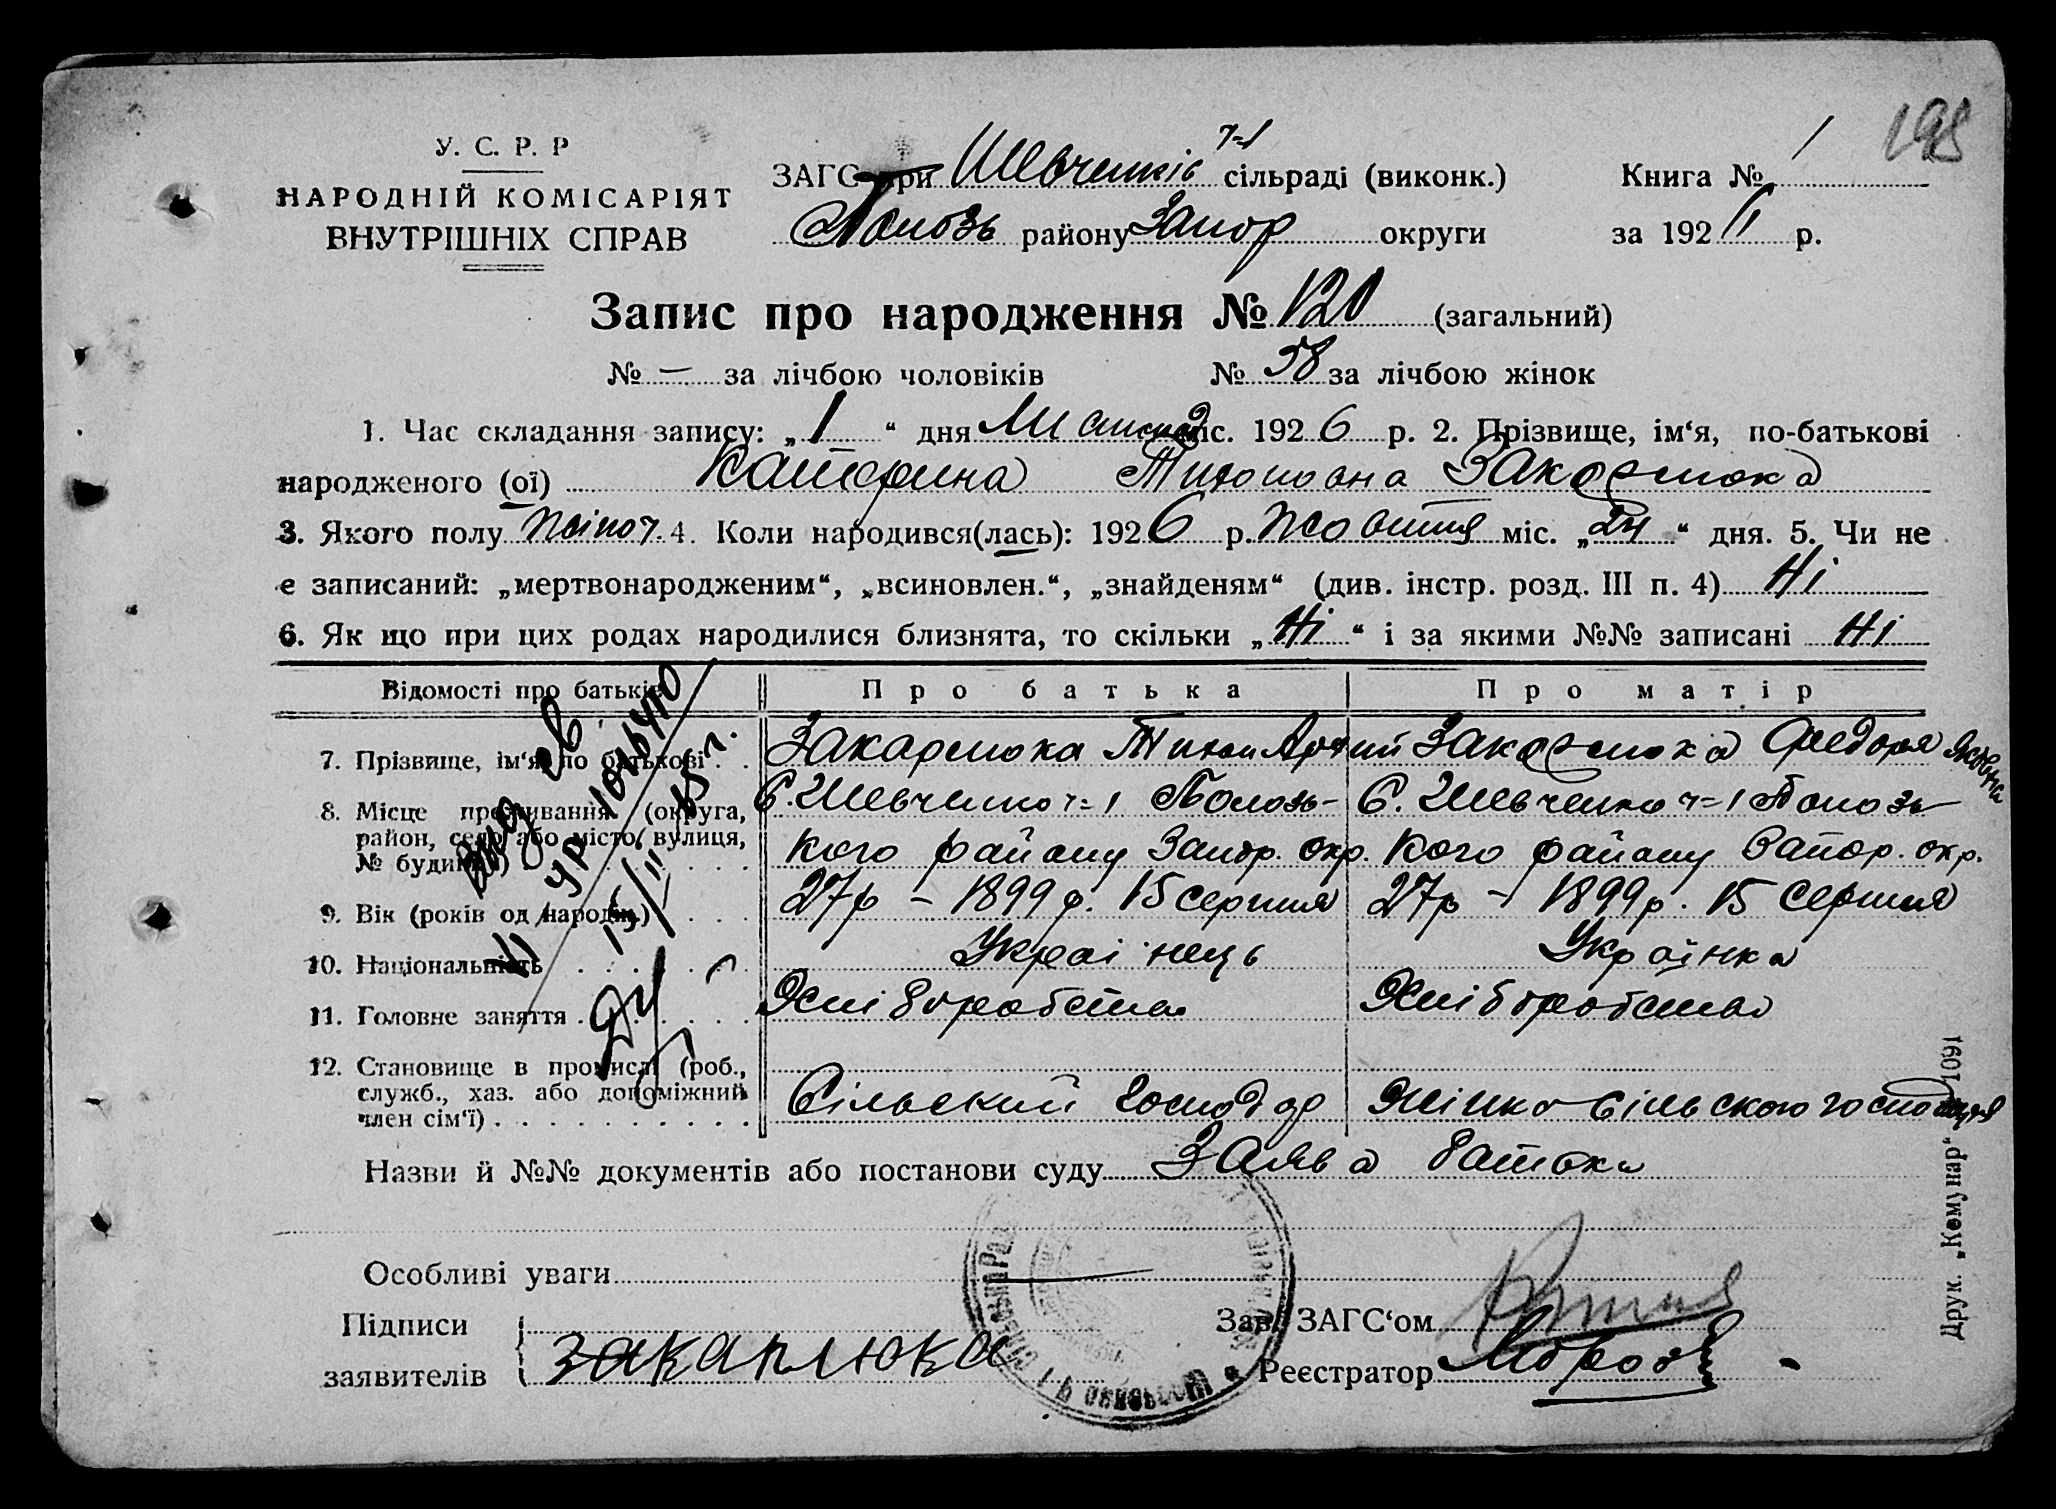 198
У. С. Р. Р
НАРОДНІЙ КОМІСАРІЯТ
ВНУТРІШНІХ СПРАВ
ЗАГС при Шевченків ч=1 сільраді (виконк.)
Книга № 1
Полозь району Запор округи
за 192 6 р.
Запис про народження № 120 (загальний)
№ — за лічбою чоловіків № 58 за лічбою жінок
1. Час складання запису: „ 1 “ дня Листопад міс. 192 6 р. 2. Прізвище, ім‘я, по-батькові
народженого (ої) Катерина Тихоновна
3. Якого полу жіноч. 4. Коли народився(лась): 192 6 р. жовтня міс. „ 24 “ дня. 5. Чи не
е записаний: „мертвонародженим“, „всиновлен.“, „знайденям“ (див. інстр. розд. III п. 4) Ні
6. Як що при цих родах народилися близнята, то скільки „ Ні “ і за якими №№ записані Ні
Відомості про батьків
Про батька
Про матір
7. Прізвище, ім‘я по батькові . .
Тихон
Федора Яковна
8. Місце проживання (округа,
район, село або місто, вулиця,
№ будинку)
С. Шевченко ч=1 Полозь-
кого району Запор. окр.
С. Шевченко ч=1 Полозь
кого району Запор. окр.
9. Вік (років од народж.) . . .
27р – 1899р. 15 серпня
27р – 1899р. 15 серпня
10. Національність
Украінець
Українка
11. Головне заняття
Хлібороботва
Хлібороботва
12. Становище в промислі (роб.,
служб., хаз. або допоміжний
член сім‘ї)
Сільский господар
Жінка сільского господаря
Назви й №№ документів або постанови суду Заява батька
Особливі уваги
Підписи
заявителів
закаплюка
Зав. ЗАГС‘ом
Реєстратор
Друк. „Комунар“ 1091